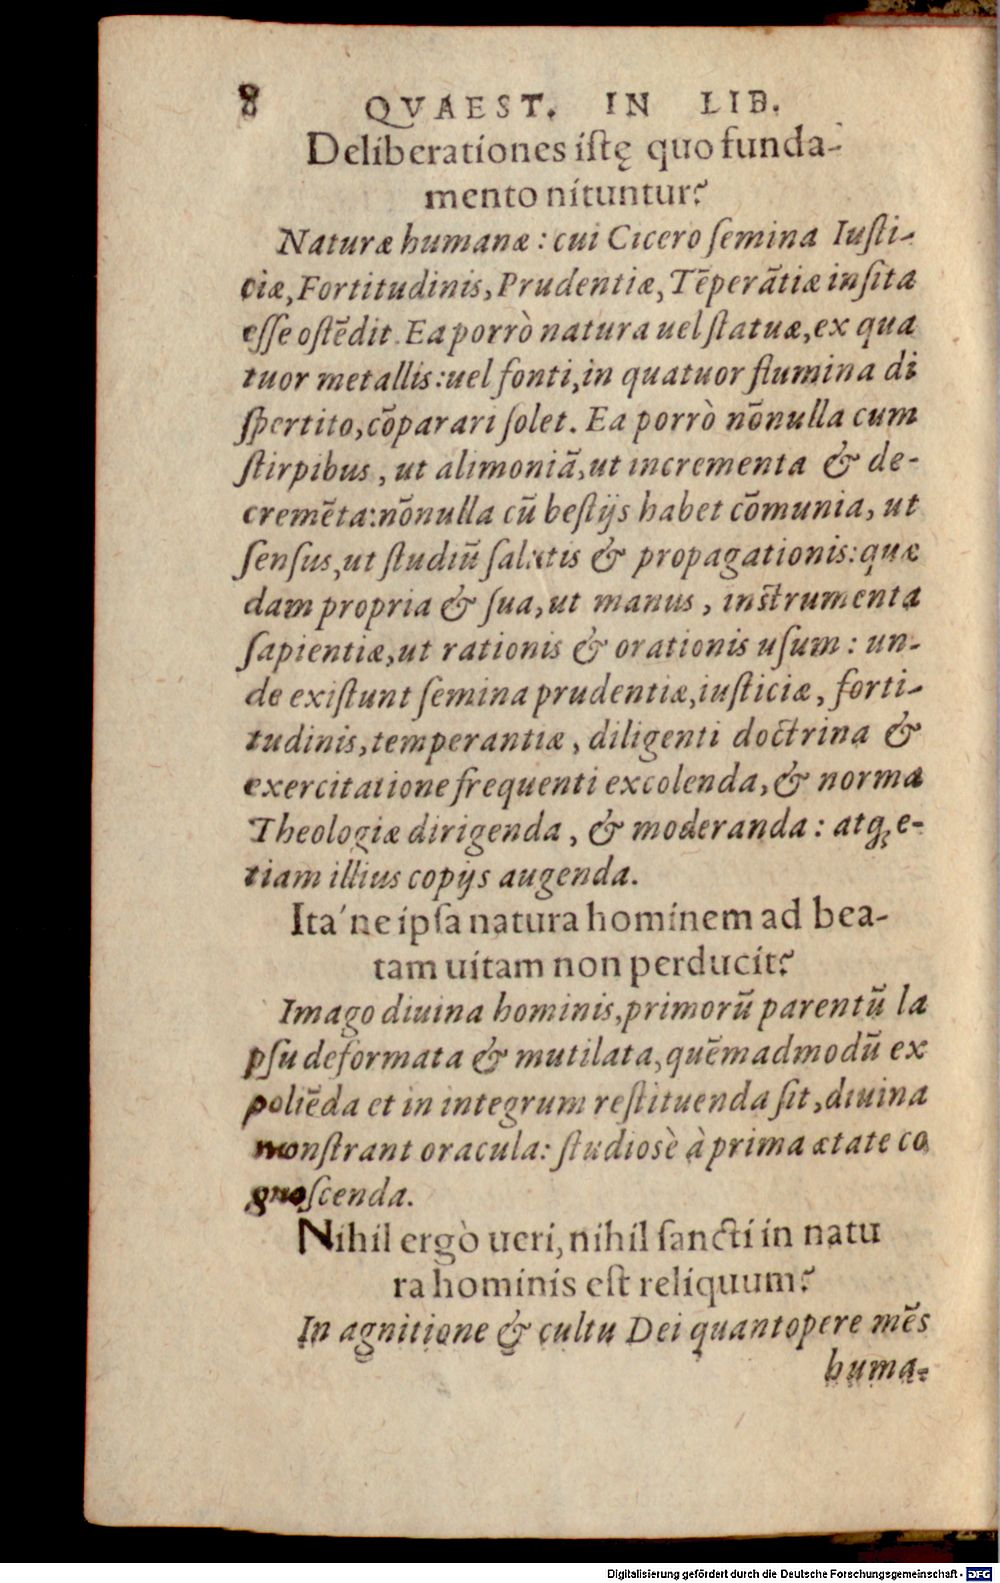 8 QVAEST. IN LIB.
Deliberationes iſtę quo funda-
mento nituntur?
Naturæ humanæ: cui Cicero ſemina Iuſti-
ciæ, Fortitudinis, Prudentiæ, Tēperātiæ inſita
eſſe oſtēdit. Ea porrò natura uel ſtatuæ, ex qua
tuor metallis: uel fonti, in quatuor flumina di
ſpertito, cōparari ſolet. Ea porrò nōnulla cum
ſtirpibus, ut alimoniā, ut incrementa & de-
cremēta: nōnulla cū beſtijs habet cōmunia, ut
ſenſus, ut ſtudiū ſalutis & propagationis: quæ
dam propria & ſua, ut manus, inſtrumenta
ſapientiæ, ut rationis & orationis uſum: un-
de exiſtunt ſemina prudentiæ, iuſticiæ, forti-
tudinis, temperantiæ, diligenti doctrina &
exercitatione frequenti excolenda, & norma
Theologiæ dirigenda, & moderanda: atq; e-
tiam illius copijs augenda.
Ita'ne ipſa natura hominem ad bea-
tam uitam non perducit?
Imago diuina hominis, primorū parentū la
pſu deformata & mutilata, quēmadmodū ex
poliēda et in integrum reſtituenda ſit, diuina
monſtrant oracula: ſtudiosè à prima ætate co
gnoſcenda.
Nihil ergò ueri, nihil ſancti in natu
ra hominis eſt reliquum?
In agnitione & cultu Dei quantopere mēs
huma-
Digitalisierung gefördert durch die Deutsche Forschungsgemeinschaft - DFG